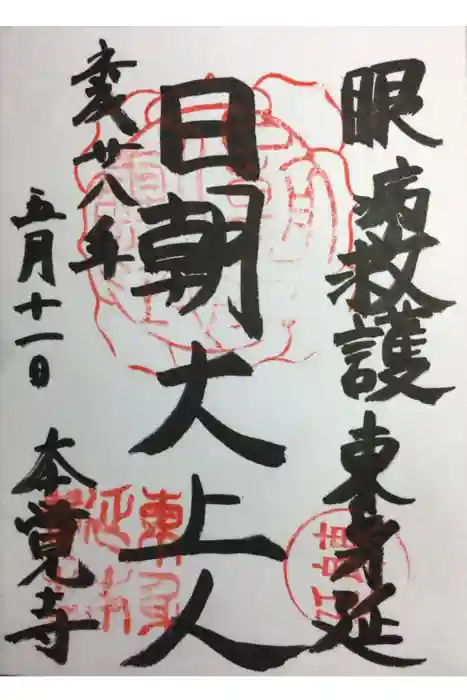 眼病救護 東身延
日朝大上人
廿八年
五月十一日
本覚寺